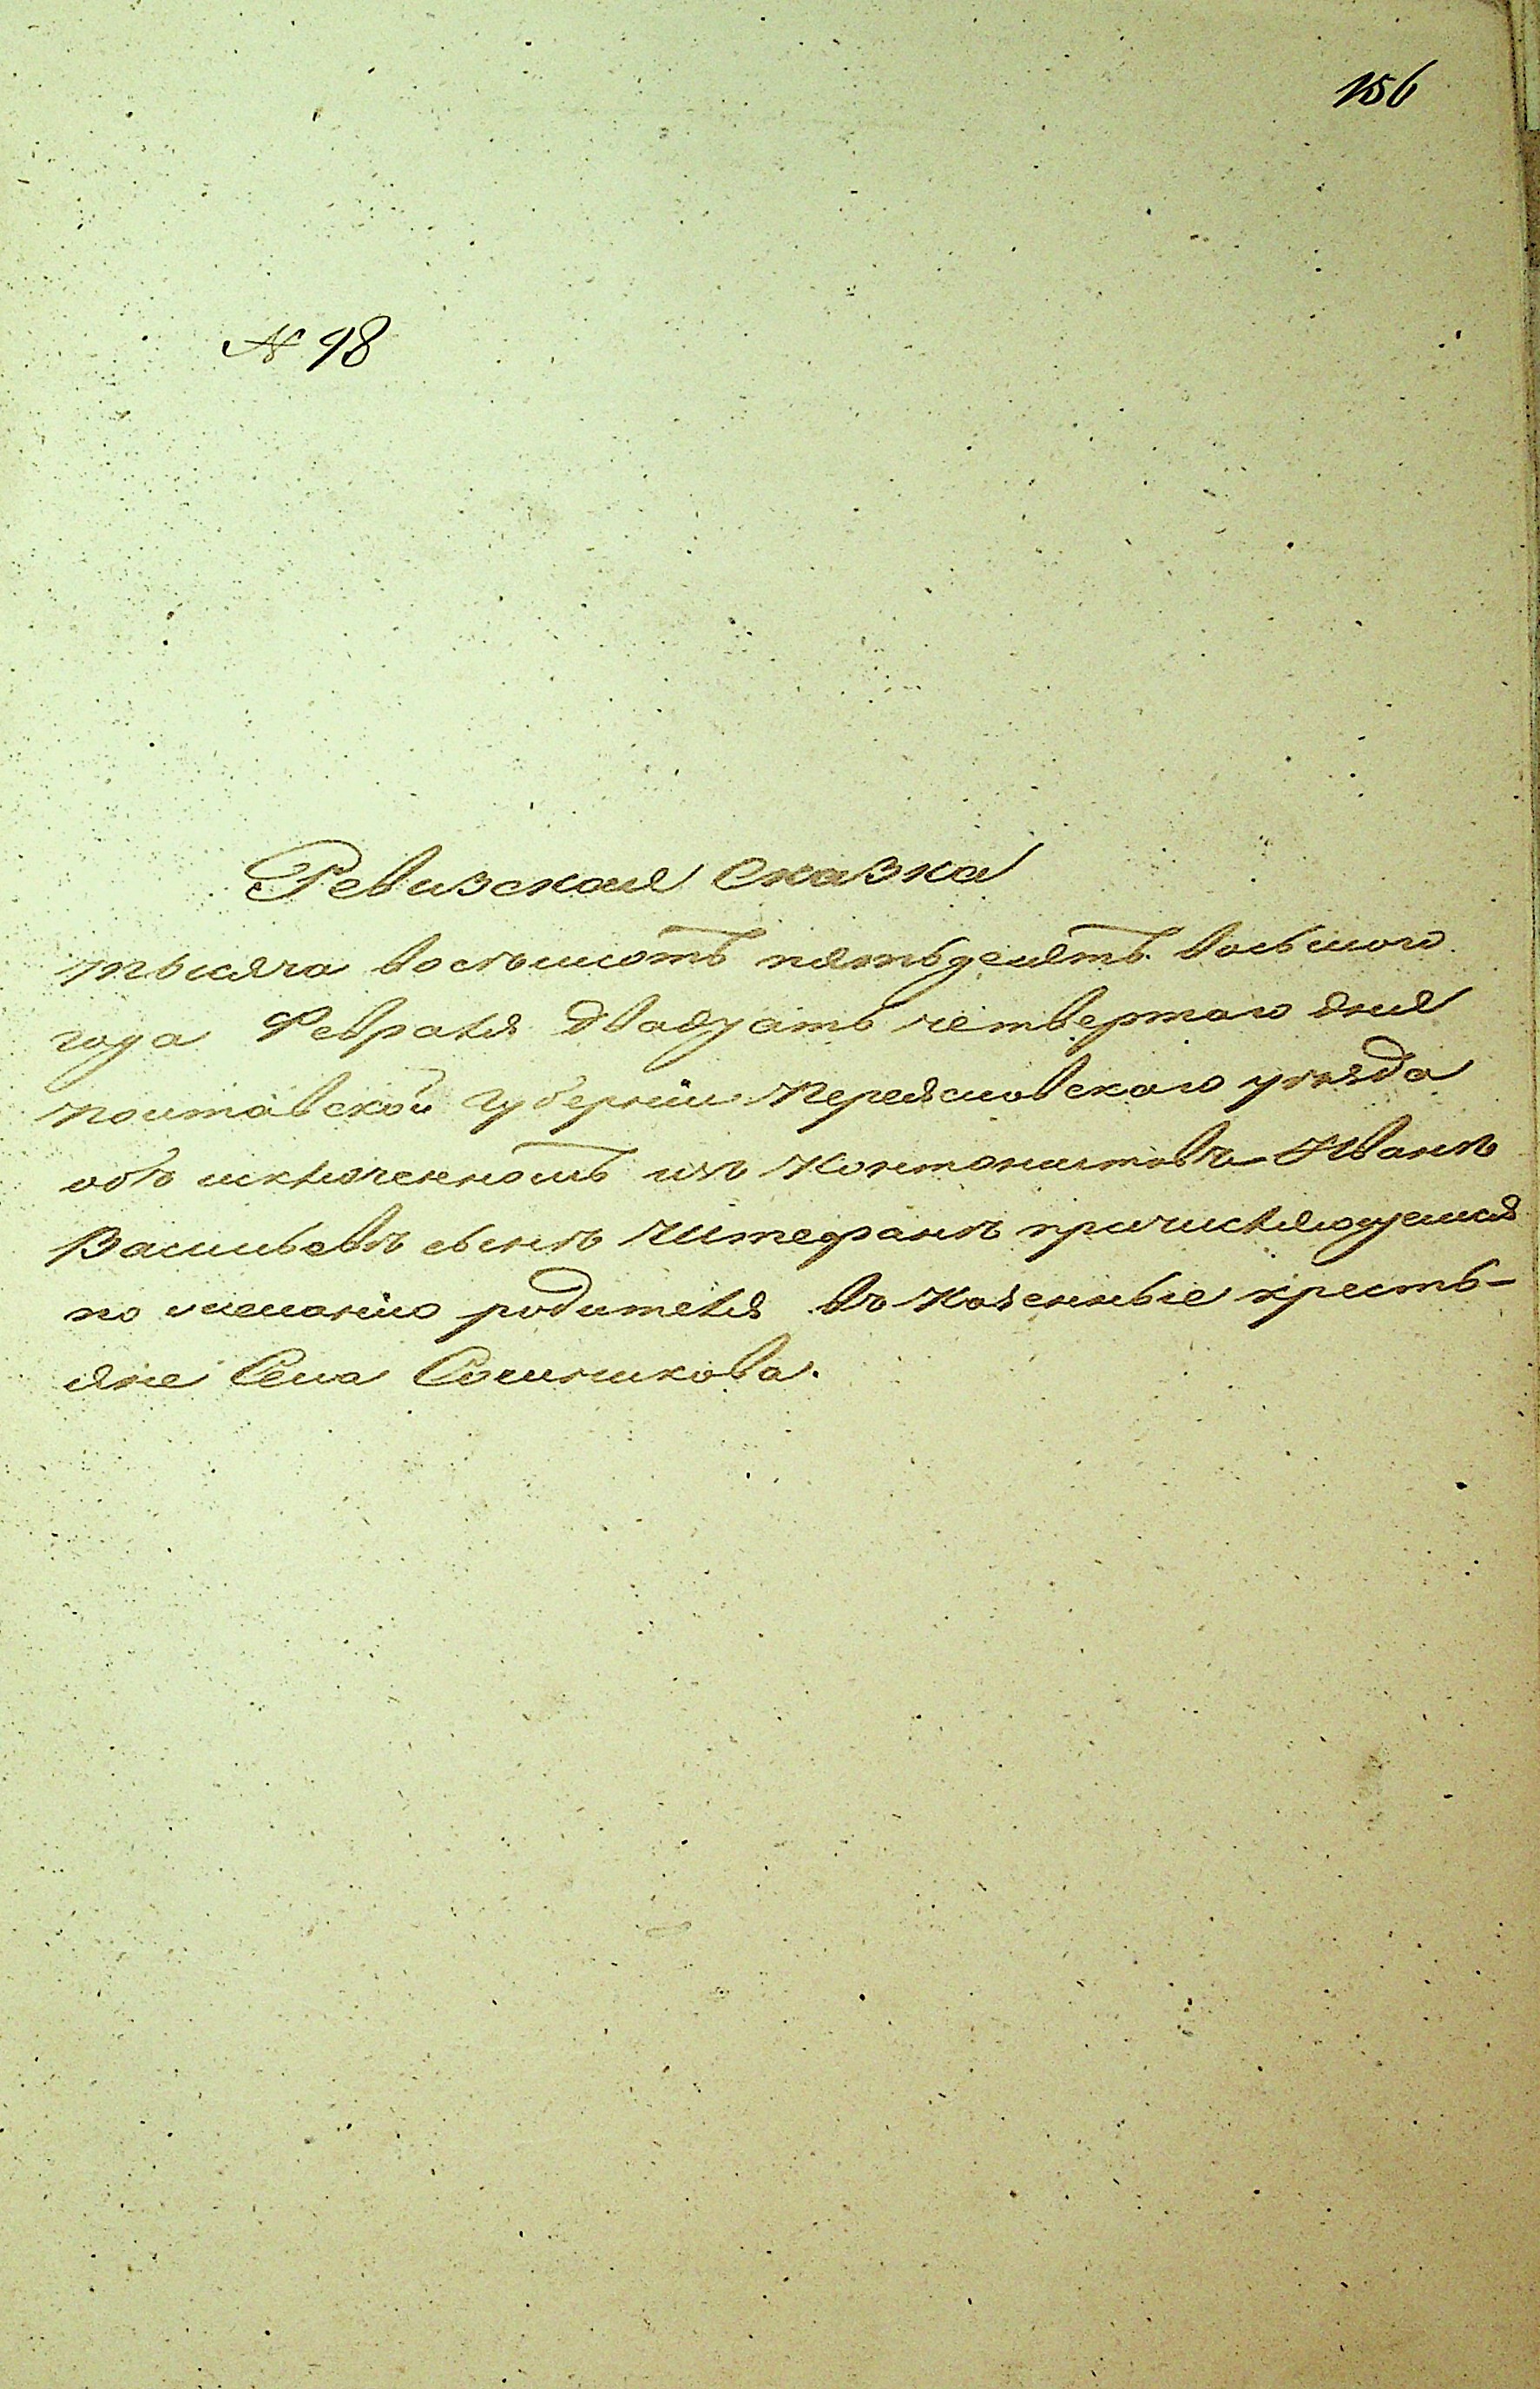 156
N 98
Ревизская Сказка
тысяча восемьсотъ пятьдесятъ восьмого
года Февраля двадцать четвертаго дня
Полтавской Губерніи Переяславскаго уѣзда
объ исключенномъ изъ Кантонистовъ Иванѣ
Васильевѣ сынѣ Штефанѣ причисляющемся
по желанію родителя въ Казенные кресть-
яне Села Сошникова.